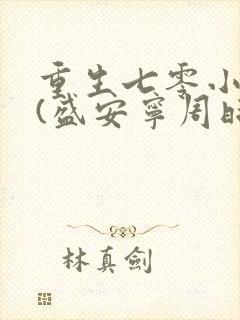 重生七零小
(盛安宁周時
林真劍